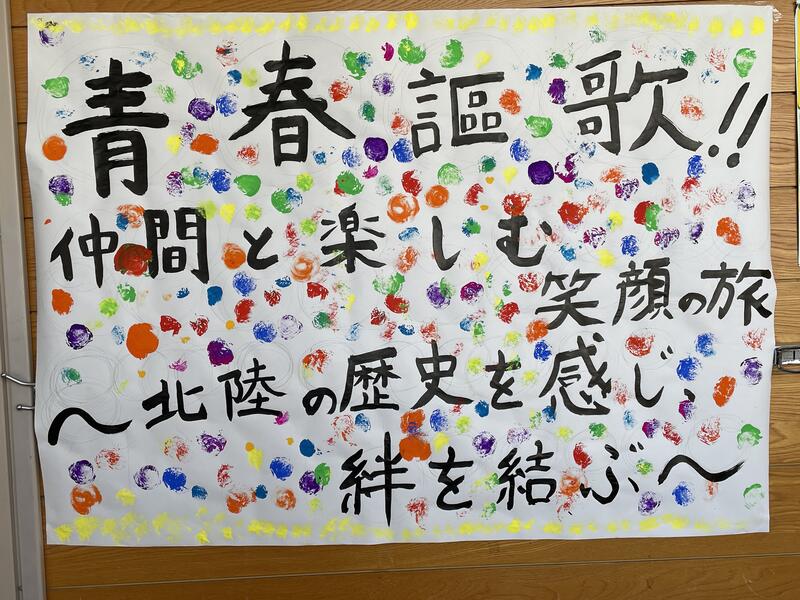 青春謳歌!!
仲間と楽しむ
笑顔の旅
～北陸の歴史を感じ、
絆を結ぶ～